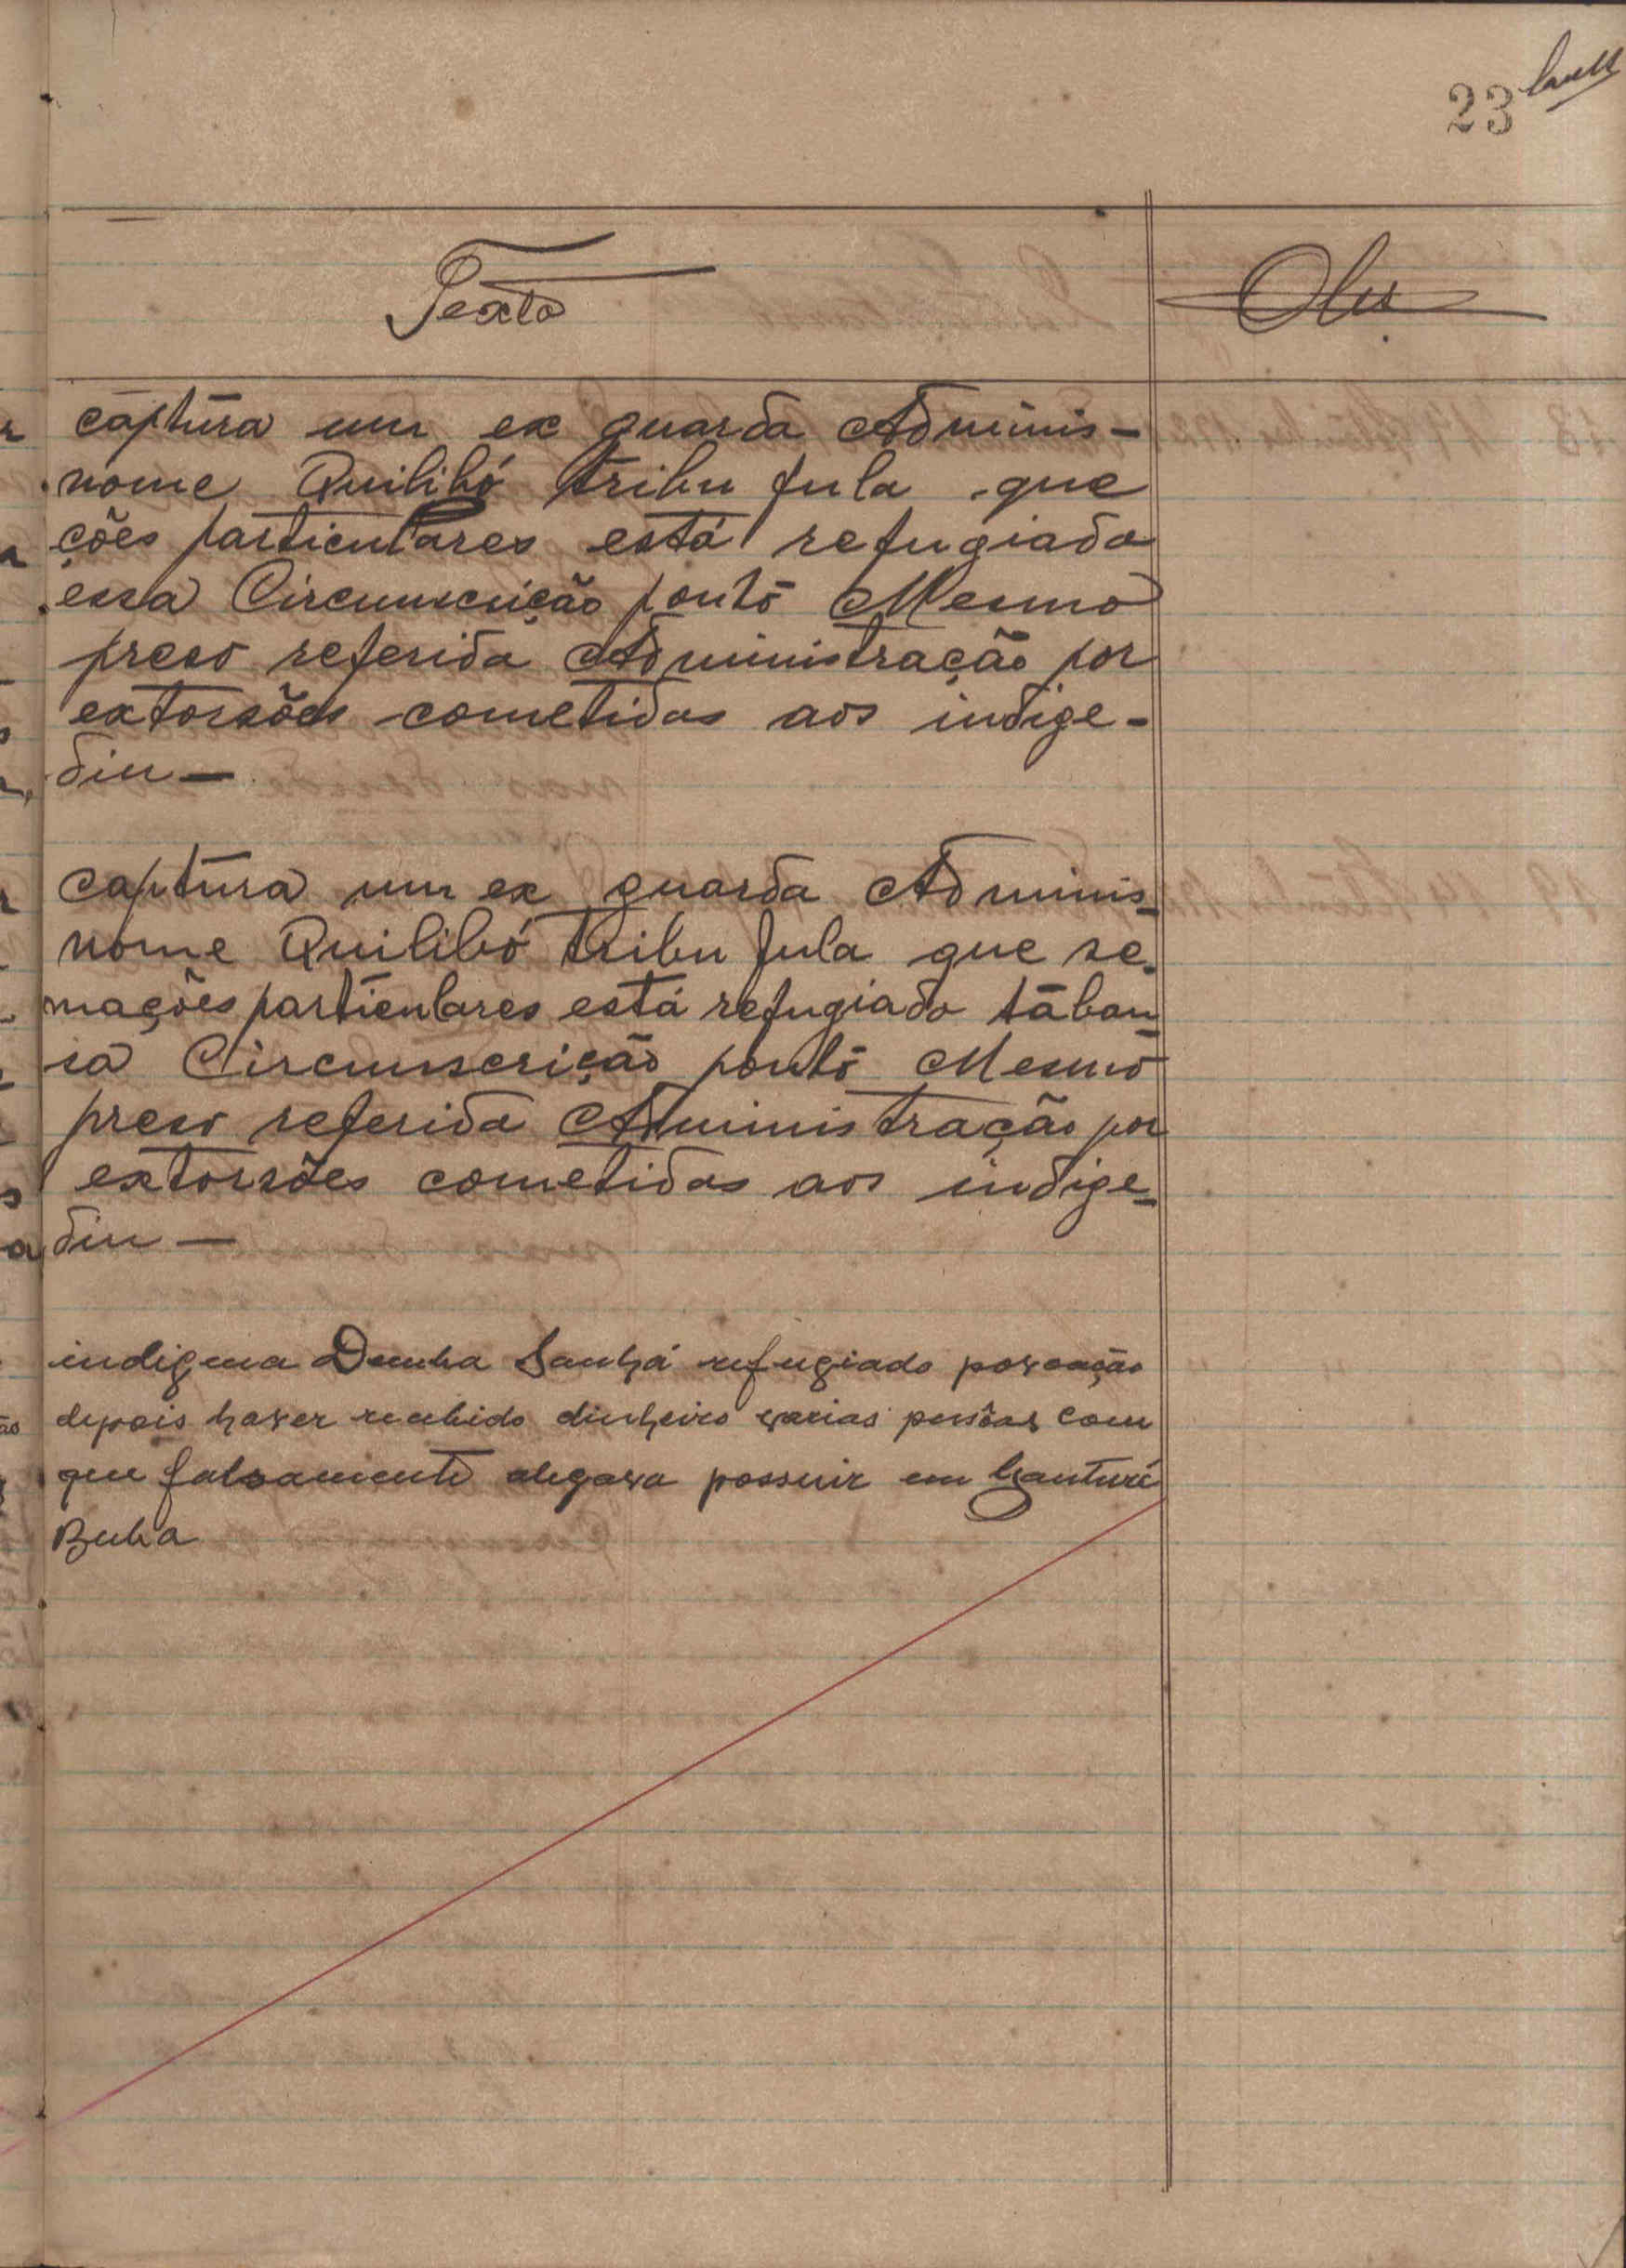 23
Texto
Obs.
captura um ex guarda Adminis-
nome Quilibó tribu fula que
ções particulares está refugiado
essa Circunscrição ponto Mesmo
preso referida Administração por
extorsões cometidas aos indige-
din —
captura um ex guarda Adminis-
nome Quilibó tribu fula que se-
mações particulares está refugiado taban
sa Circunscrição ponto Mesmo
preso referida Administração por
extorsões cometidas aos indige-
din —
indigena Demba Sanhá refugiado povoação
depois haver recebido dinheiro varias pessôas com
que falsamente alegava possuir em
Buba